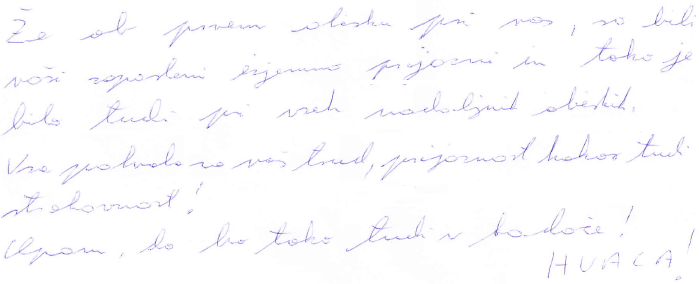 Že ob prvem obisku pri vas, so bili
vaši zaposleni izjemno prijazni in tako je
bilo tudi pri vseh nadaljnih obiskih.
Vsa pohvala za vaš trud, prijaznost kakor tudi
strokovnost!
Upam, da bo tako tudi v bodoče!
HVALA!